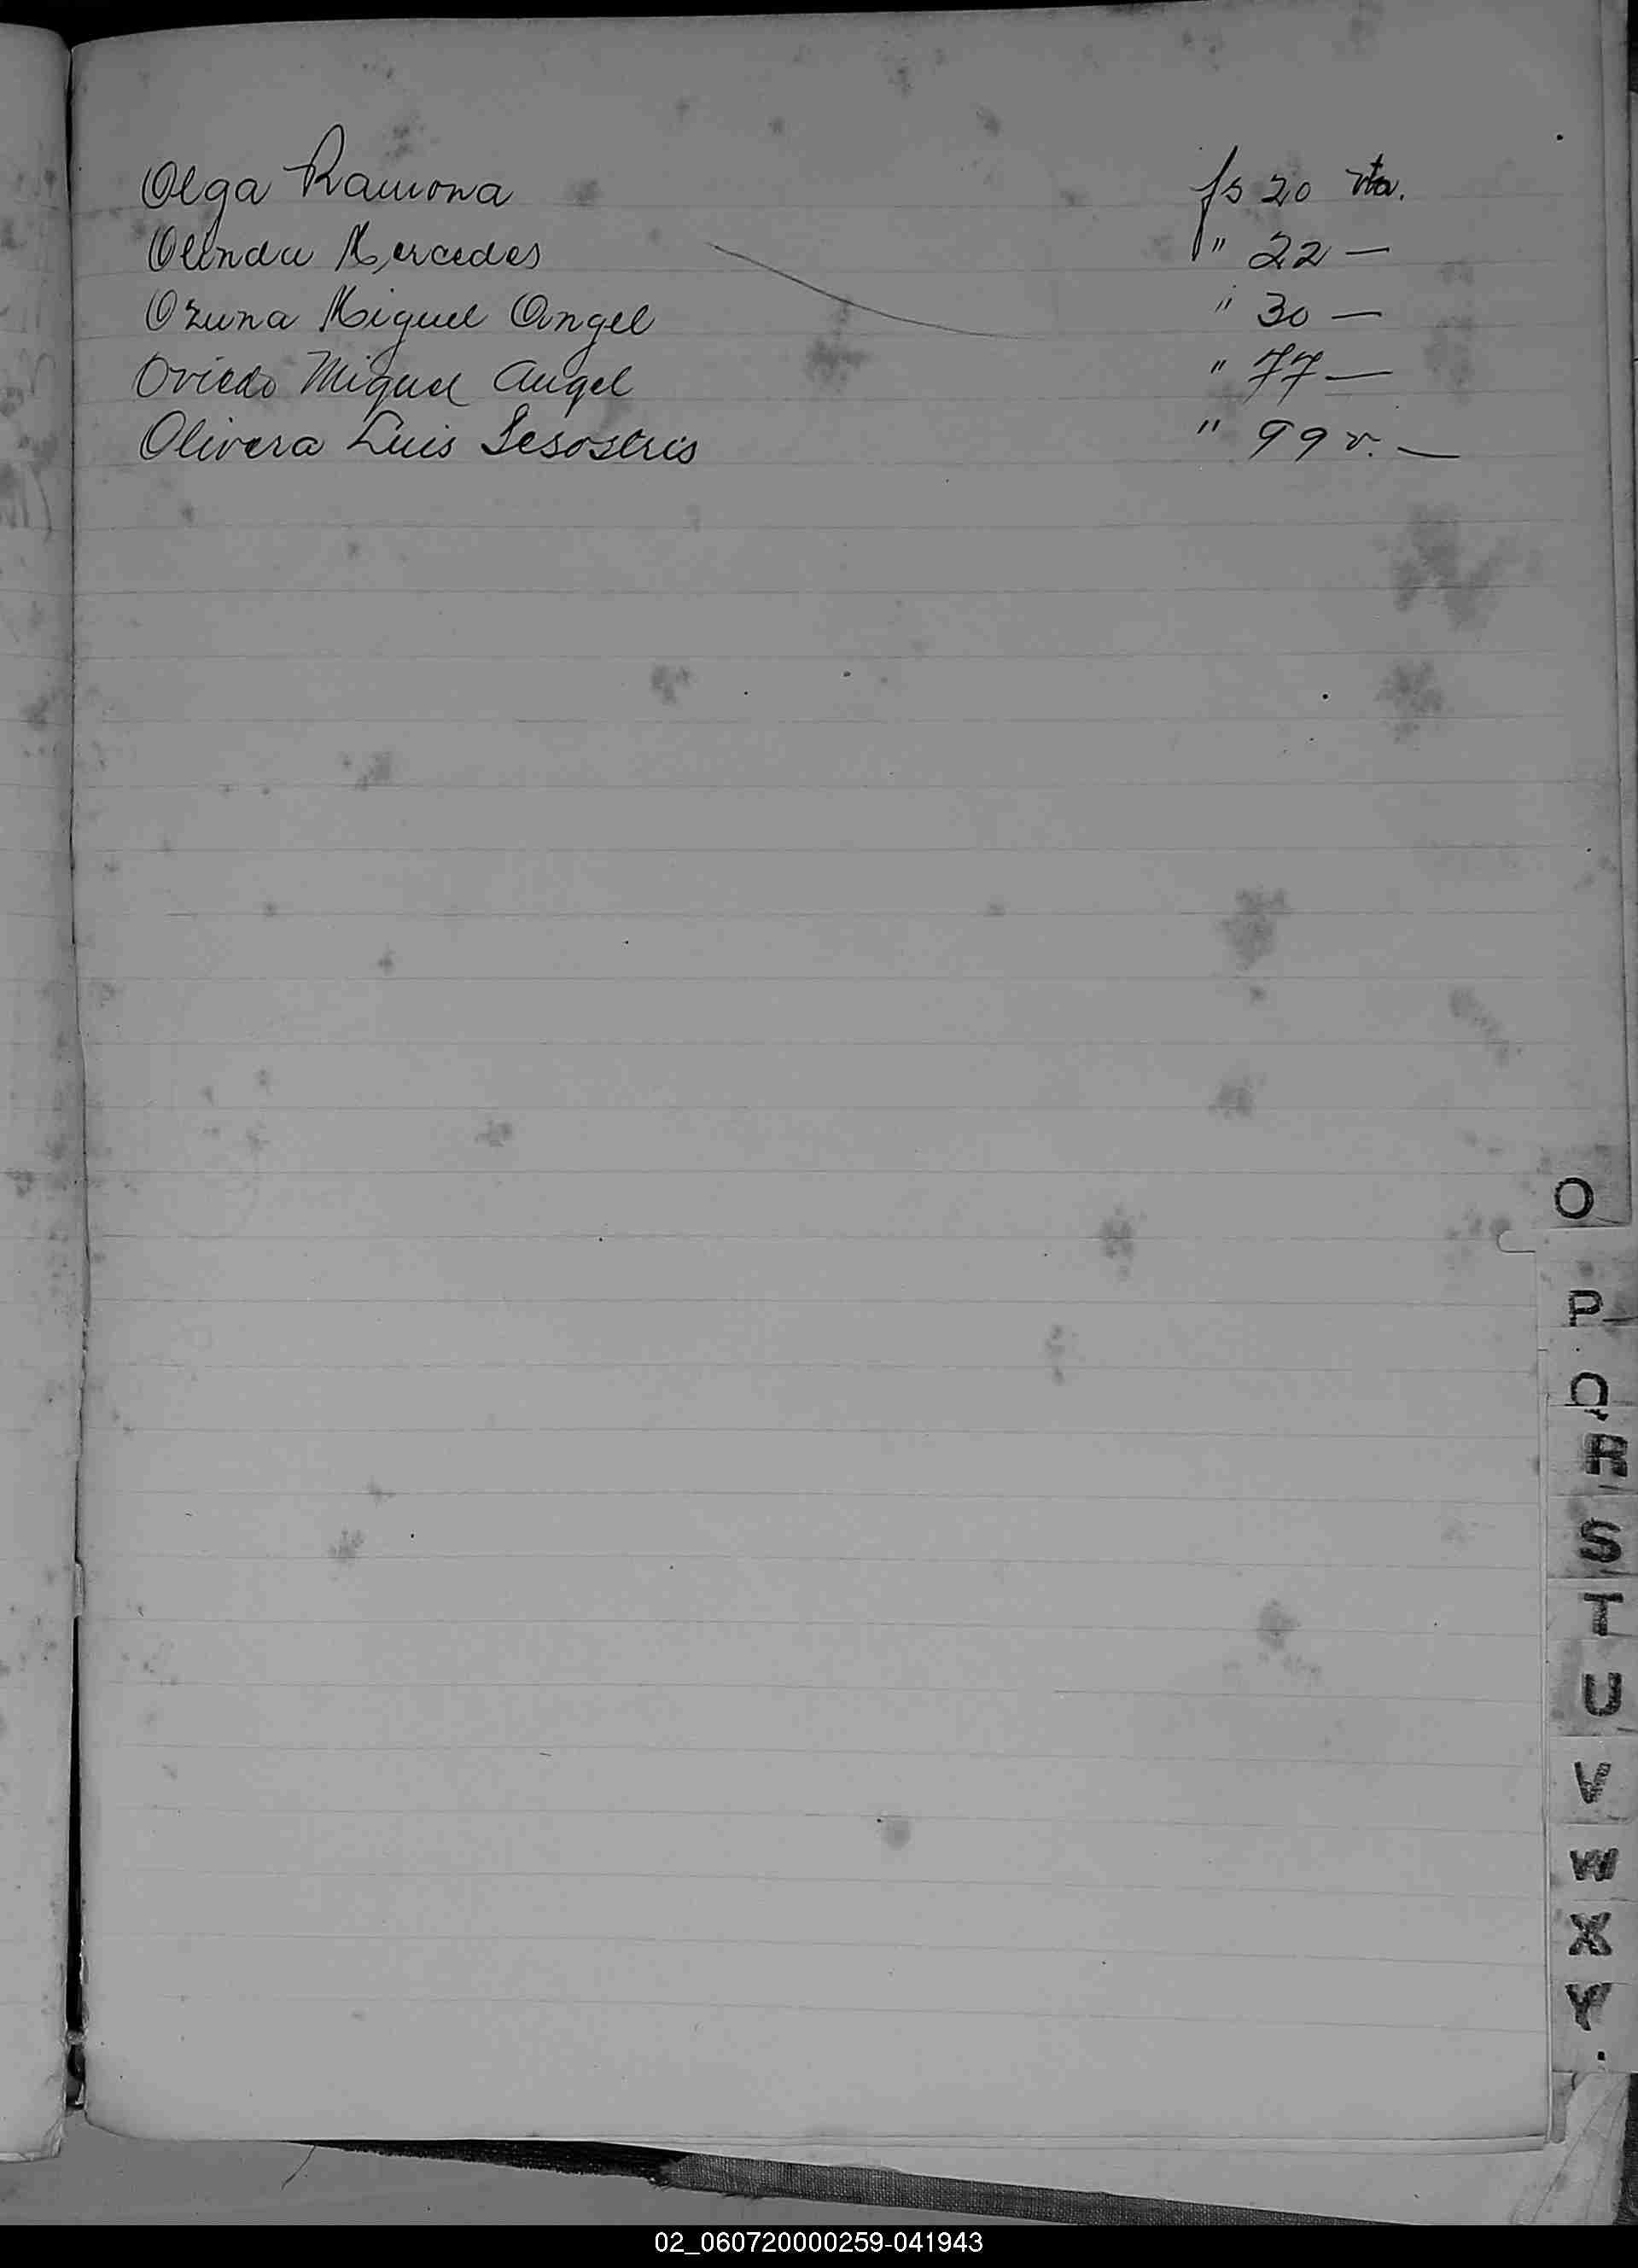 Olga Ramona fs 20 vta.
Olinda Mercedes " 22 —
Ozuna Miguel Angel " 30 —
Oviedo Miguel Angel " 77 —
Olivera Luis Sesostris " 99 v. —
O
P
Q
R
S
T
U
V
W
X
Y
02_060720000259-041943